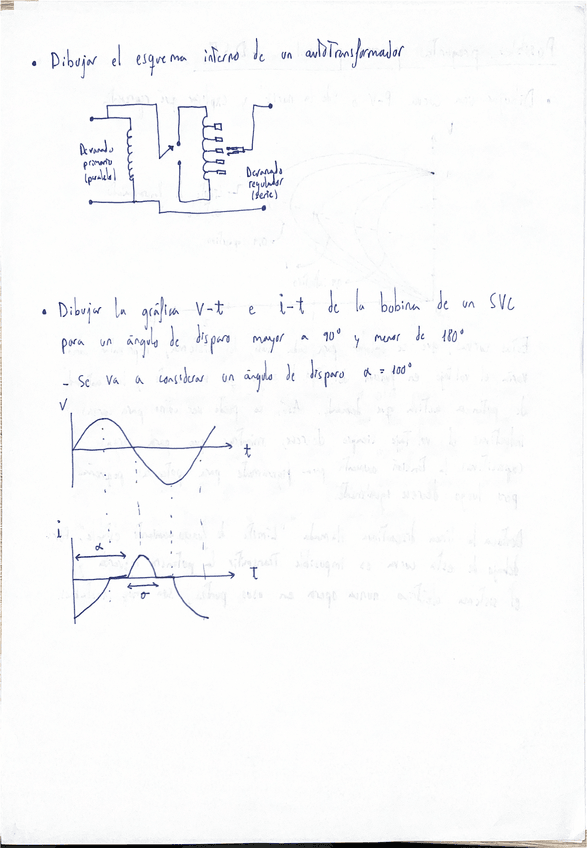 • Dibujar el esquema interno de un autotransformador
Devanado
primario
(paralelo)
Devanado
regulador
(serie)
• Dibujar la gráfica V-t e i-t de la bobina de un SVC
para un ángulo de disparo mayor a 90° y menor de 180°
- Se va a considerar un ángulo de disparo α = 100°
V
t
i
α
σ
t